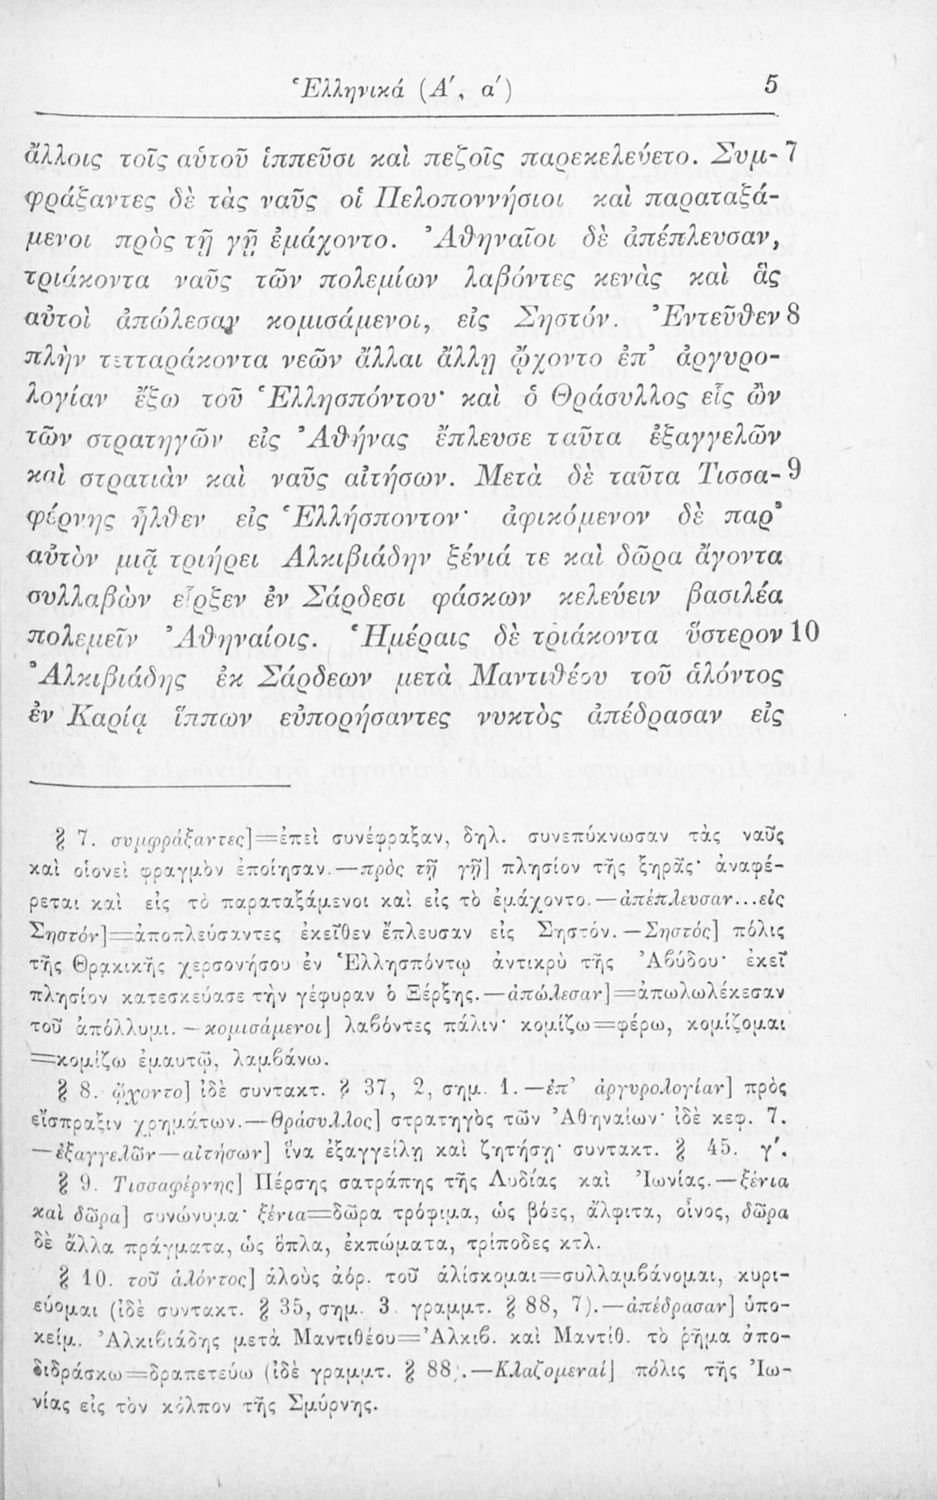 Ἑλληνικά (Α΄, α΄) 5
ἄλλοις τοῖς αὑτοῦ ἱππεῦσι καὶ πεζοῖς παρεκελεύετο. Συμ- 7
φράξαντες δὲ τὰς ναῦς οἱ Πελοποννήσιοι καὶ παραταξά-
μενοι πρὸς τῇ γῇ ἐμάχοντο. Ἀθηναῖοι δὲ ἀπέπλευσαν,
τριάκοντα ναῦς τῶν πολεμίων λαβόντες κενὰς καὶ ἃς
αὐτοὶ ἀπώλεσαν κομισάμενοι, εἰς Σηστόν. Ἐντεῦθεν 8
πλὴν τετταράκοντα νεῶν ἄλλαι ἄλλῃ ᾤχοντο ἐπ’ ἀργυρο-
λογίαν ἔξω τοῦ Ἑλλησπόντου· καὶ ὁ Θράσυλλος εἷς ὢν
τῶν στρατηγῶν εἰς Ἀθήνας ἔπλευσε ταῦτα ἐξαγγελῶν
καὶ στρατιὰν καὶ ναῦς αἰτήσων. Μετὰ δὲ ταῦτα Τισσα- 9
φέρνης ἦλθεν εἰς Ἑλλήσποντον· ἀφικόμενον δὲ παρ’
αὐτὸν μιᾷ τριήρει Ἀλκιβιάδην ξένιά τε καὶ δῶρα ἄγοντα
συλλαβὼν εἶρξεν ἐν Σάρδεσι φάσκων κελεύειν βασιλέα
πολεμεῖν Ἀθηναίοις. Ἡμέραις δὲ τριάκοντα ὕστερον 10
Ἀλκιβιάδης ἐκ Σάρδεων μετὰ Μαντιθέου τοῦ ἁλόντος
ἐν Καρίᾳ ἵππων εὐπορήσαντες νυκτὸς ἀπέδρασαν εἰς
§ 7. συμφράξαντες]=ἐπεὶ συνέφραξαν, δηλ. συνεπύκνωσαν τὰς ναῦς
καὶ οἱονεὶ φραγμὸν ἐποίησαν.—πρὸς τῇ γῇ] πλησίον τῆς ξηρᾶς· ἀναφέ-
ρεται καὶ εἰς τὸ παραταξάμενοι καὶ εἰς τὸ ἐμάχοντο.—ἀπέπλευσαν...εἰς
Σηστόν]=ἀποπλεύσαντες ἐκεῖθεν ἔπλευσαν εἰς Σηστόν.—Σηστός] πόλις
τῆς Θρᾳκικῆς χερσονήσου ἐν Ἑλλησπόντῳ ἀντικρὺ τῆς Ἀβύδου· ἐκεῖ
πλησίον κατεσκεύασε τὴν γέφυραν ὁ Ξέρξης.—ἀπώλεσαν]=ἀπωλωλέκεσαν
τοῦ ἀπόλλυμι.—κομισάμενοι] λαβόντες πάλιν· κομίζω=φέρω, κομίζομαι
=κομίζω ἐμαυτῷ, λαμβάνω.
§ 8. ᾤχοντο] ἰδὲ συντακτ. § 37, 2, σημ. 1.—ἐπ’ ἀργυρολογίαν] πρὸς
εἴσπραξιν χρημάτων.—Θράσυλλος] στρατηγὸς τῶν Ἀθηναίων· ἰδὲ κεφ. 7.
—ἐξαγγελῶν—αἰτήσων] ἵνα ἐξαγγείλῃ καὶ ζητήσῃ· συντακτ. § 45. γ΄.
§ 9. Τισσαφέρνης] Πέρσης σατράπης τῆς Λυδίας καὶ Ἰωνίας.—ξένια
καὶ δῶρα] συνώνυμα· ξένια=δῶρα τρόφιμα, ὡς βόες, ἄλφιτα, οἶνος, δῶρα
δὲ ἄλλα πράγματα, ὡς ὅπλα, ἐκπώματα, τρίποδες κτλ.
§ 10. τοῦ ἁλόντος] ἁλοὺς ἀόρ. τοῦ ἁλίσκομαι=συλλαμβάνομαι, κυρι-
εύομαι (ἰδὲ συντακτ. § 35, σημ. 3. γραμμτ. § 88, 7).—ἀπέδρασαν] ὑπο-
κείμ. Ἀλκιβιάδης μετὰ Μαντιθέου=Ἀλκιβ. καὶ Μαντίθ. τὸ ῥῆμα ἀπο-
διδράσκω=δραπετεύω (ἰδὲ γραμμτ. § 88).—Κλαζομεναί] πόλις τῆς Ἰω-
νίας εἰς τὸν κόλπον τῆς Σμύρνης.